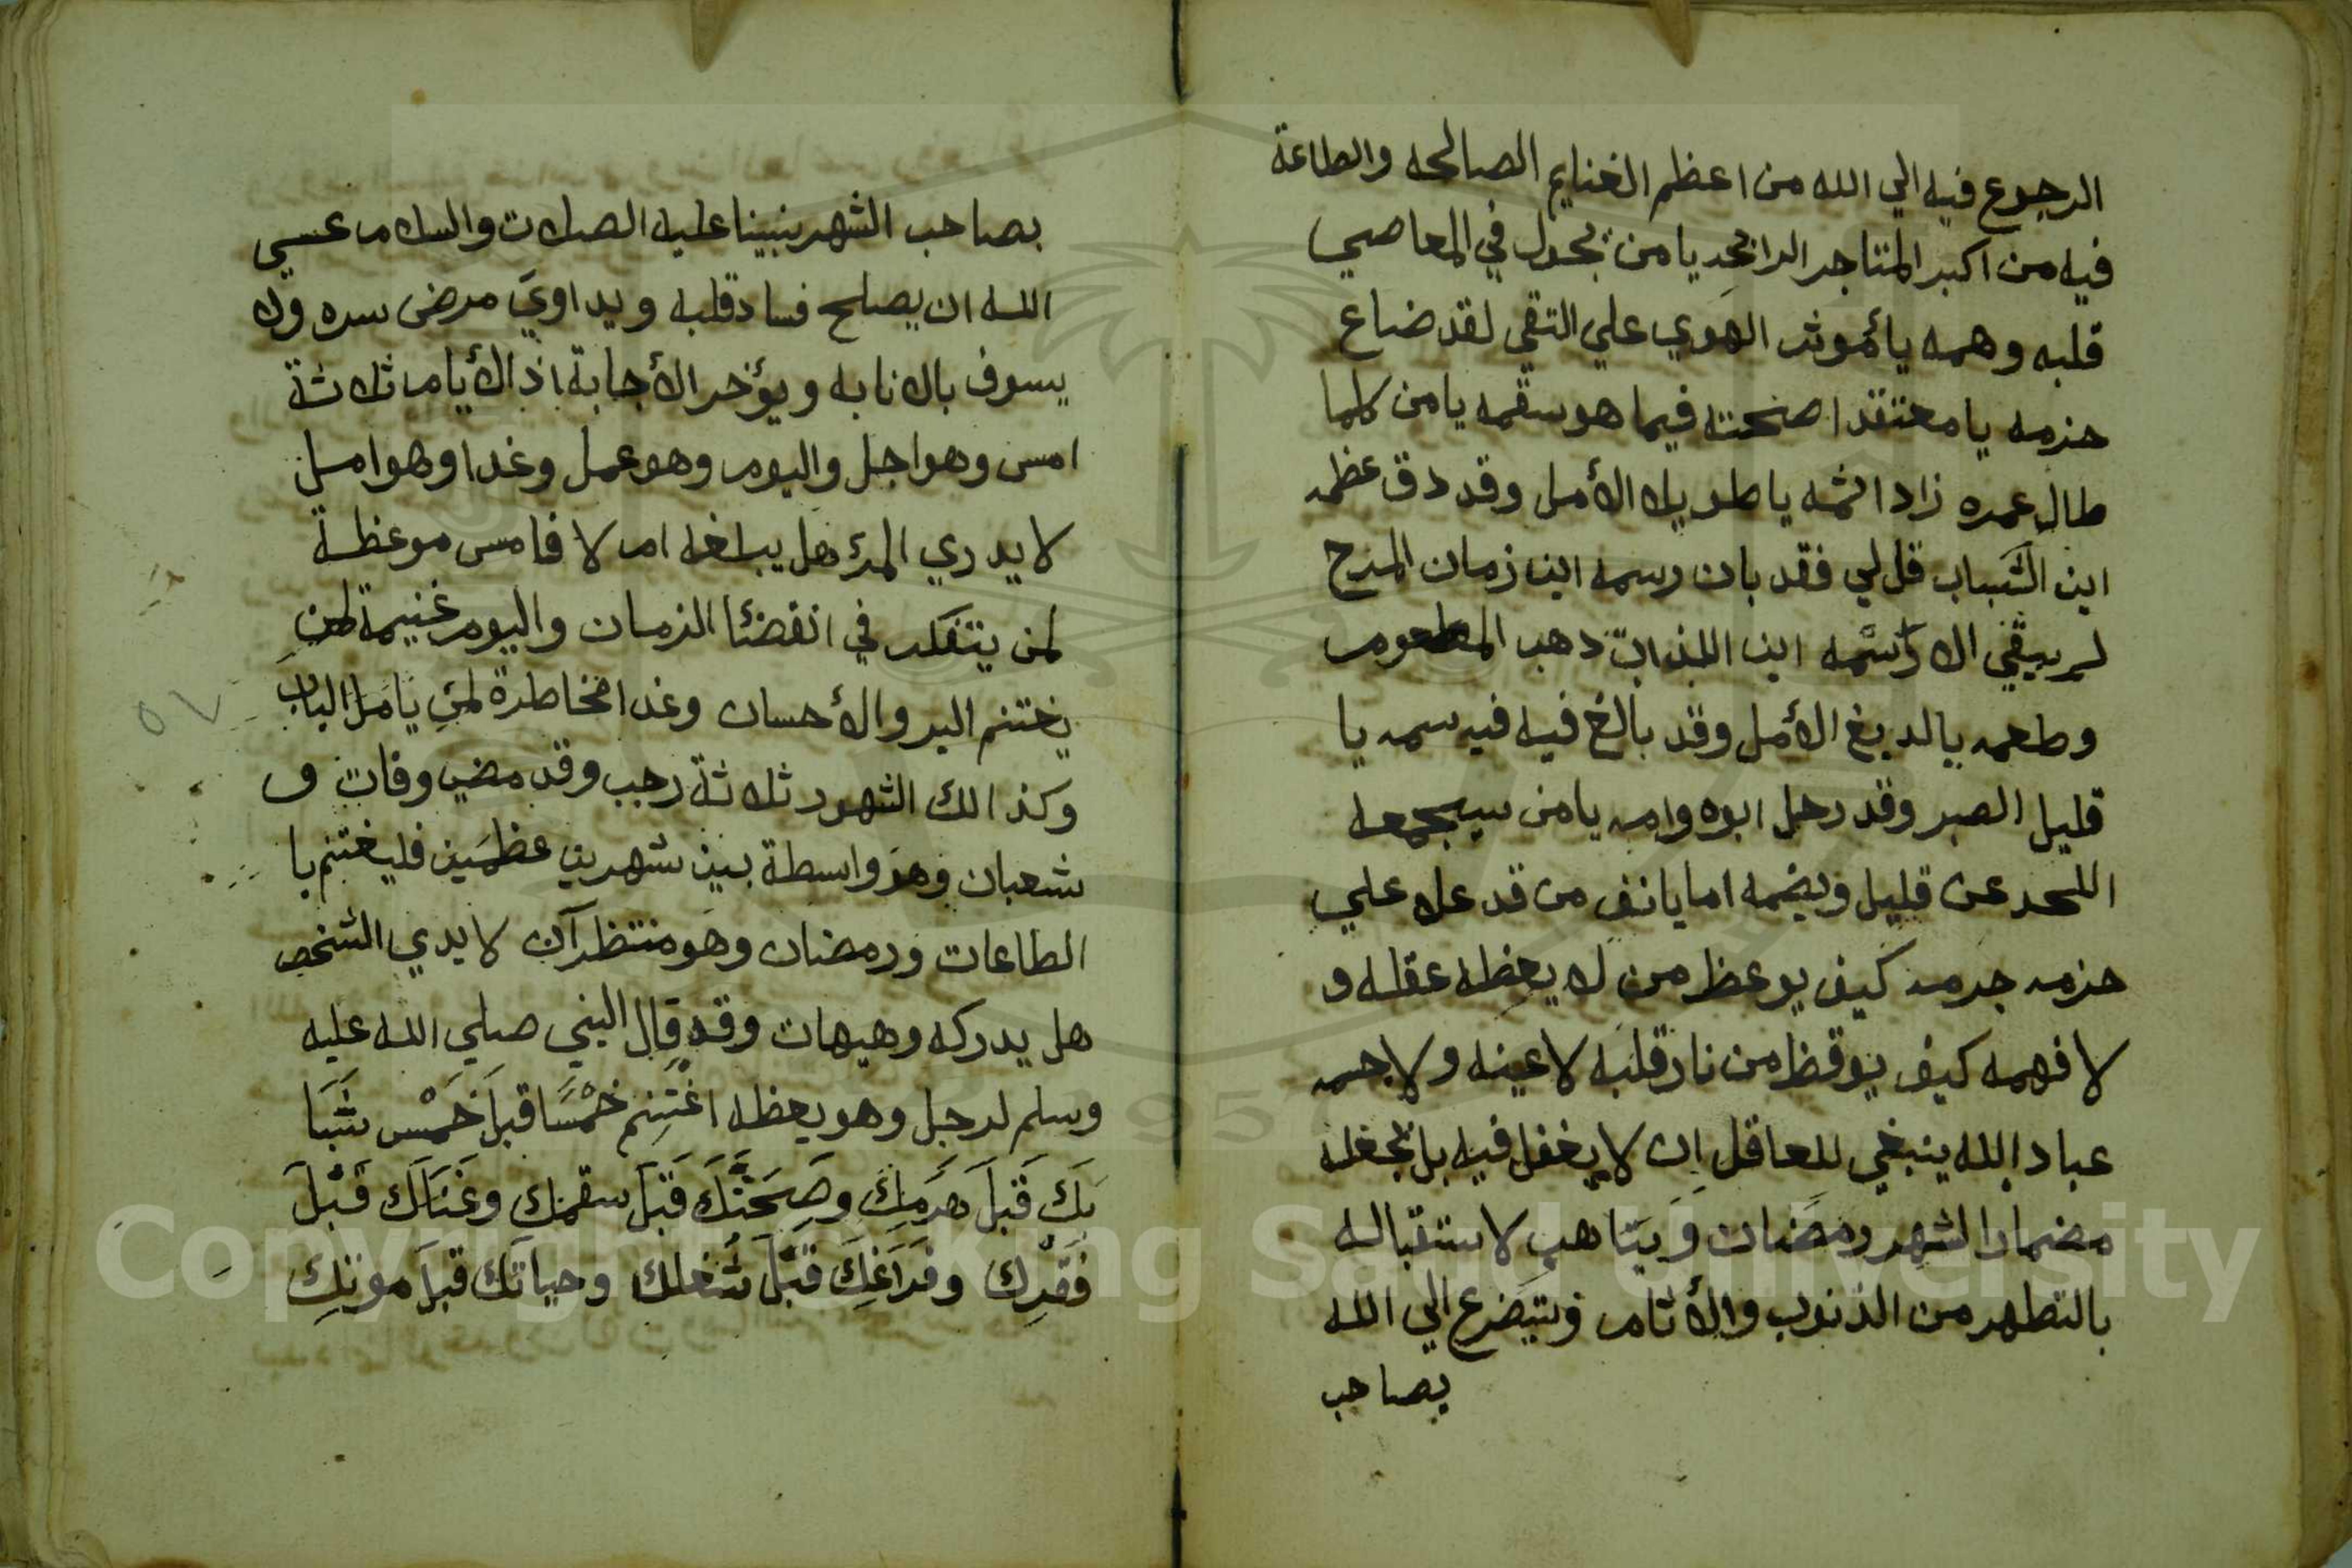 الرجوع فيه الي الله من اعظم الغنايم الصالحه والطاعة
فيه من اكبر المتاجر الرابحه يا من يجول في المعاصي
قلبه وهمه يا مؤثر الهوي علي التقي لقد ضاع
حزمه يا معتقد اصحته فيما هو سقمه يا من كلما
طال عمره زاد اثمه يا طويل الأمل وقد دق عظمه
اين الشباب قل لي فقد بان رسمه اين زمان المرح
لم يبقي الا اسمه اين اللذات ذهب المطعوم
وطعمه يا لديغ الأمل وقد بالغ فيه فيه سمه يا
قليل الصبر وقد رحل ابوه وامه يا من سيجمعه
اللحد عن قليل ويضمه اما يانف من قد علا علي
حزمه جرمه كيف يوعظ من لا يعظه عقله و
لا فهمه كيف يوقظ من نار قلبه لا عينه ولا جسمه
عباد الله ينبغي للعاقل ان لا يغفل فيه بل يجعله
مضمارا لشهر رمضان ويتاهب لاستقباله
بالتطهر من الذنوب والأثام ويتضرع الي الله
بصاحب
بصاحب الشهر نبينا عليه الصلات والسلام عسي
الله ان يصلح فساد قلبه ويداوي مرض سره ولا
يسوف بالانابه ويؤخر الأجابة اذ الأيام ثلاثة
امس وهو اجل واليوم وهو عمل وغدا وهو امل
لا يدري المرء هل يبلغه ام لا فامس موعظة
لمن يتفكر في انقضئا الزمان واليوم غنيمة لمن
يغتنم البر والأحسان وغدا مخاطرة لمن يامل
وكذالك الشهور ثلاثة رجب وقد مضي وفات و
شعبان وهو واسطة بين شهرين عظمين فليغتنم با
الطاعات ورمضان وهو منتظر آن لا يدي الشخص
هل يدركه وهيهات وقد قال النبي صلي الله عليه
وسلم لرجل وهو يعظه اغْتَنِم خَمْسًا قبلَ خَمْس شَبَا
بَكَ قَبْلَ هَرَمِكَ وصِحَّتَكَ قَبْلَ سقمك وغَنَالَك قَبْلَ
فَقْرِك وفَرَاغِكَ قَبْلَ شُغلك وحياتك قبلَ موتِكِ
Copyright © King Saud University
1957